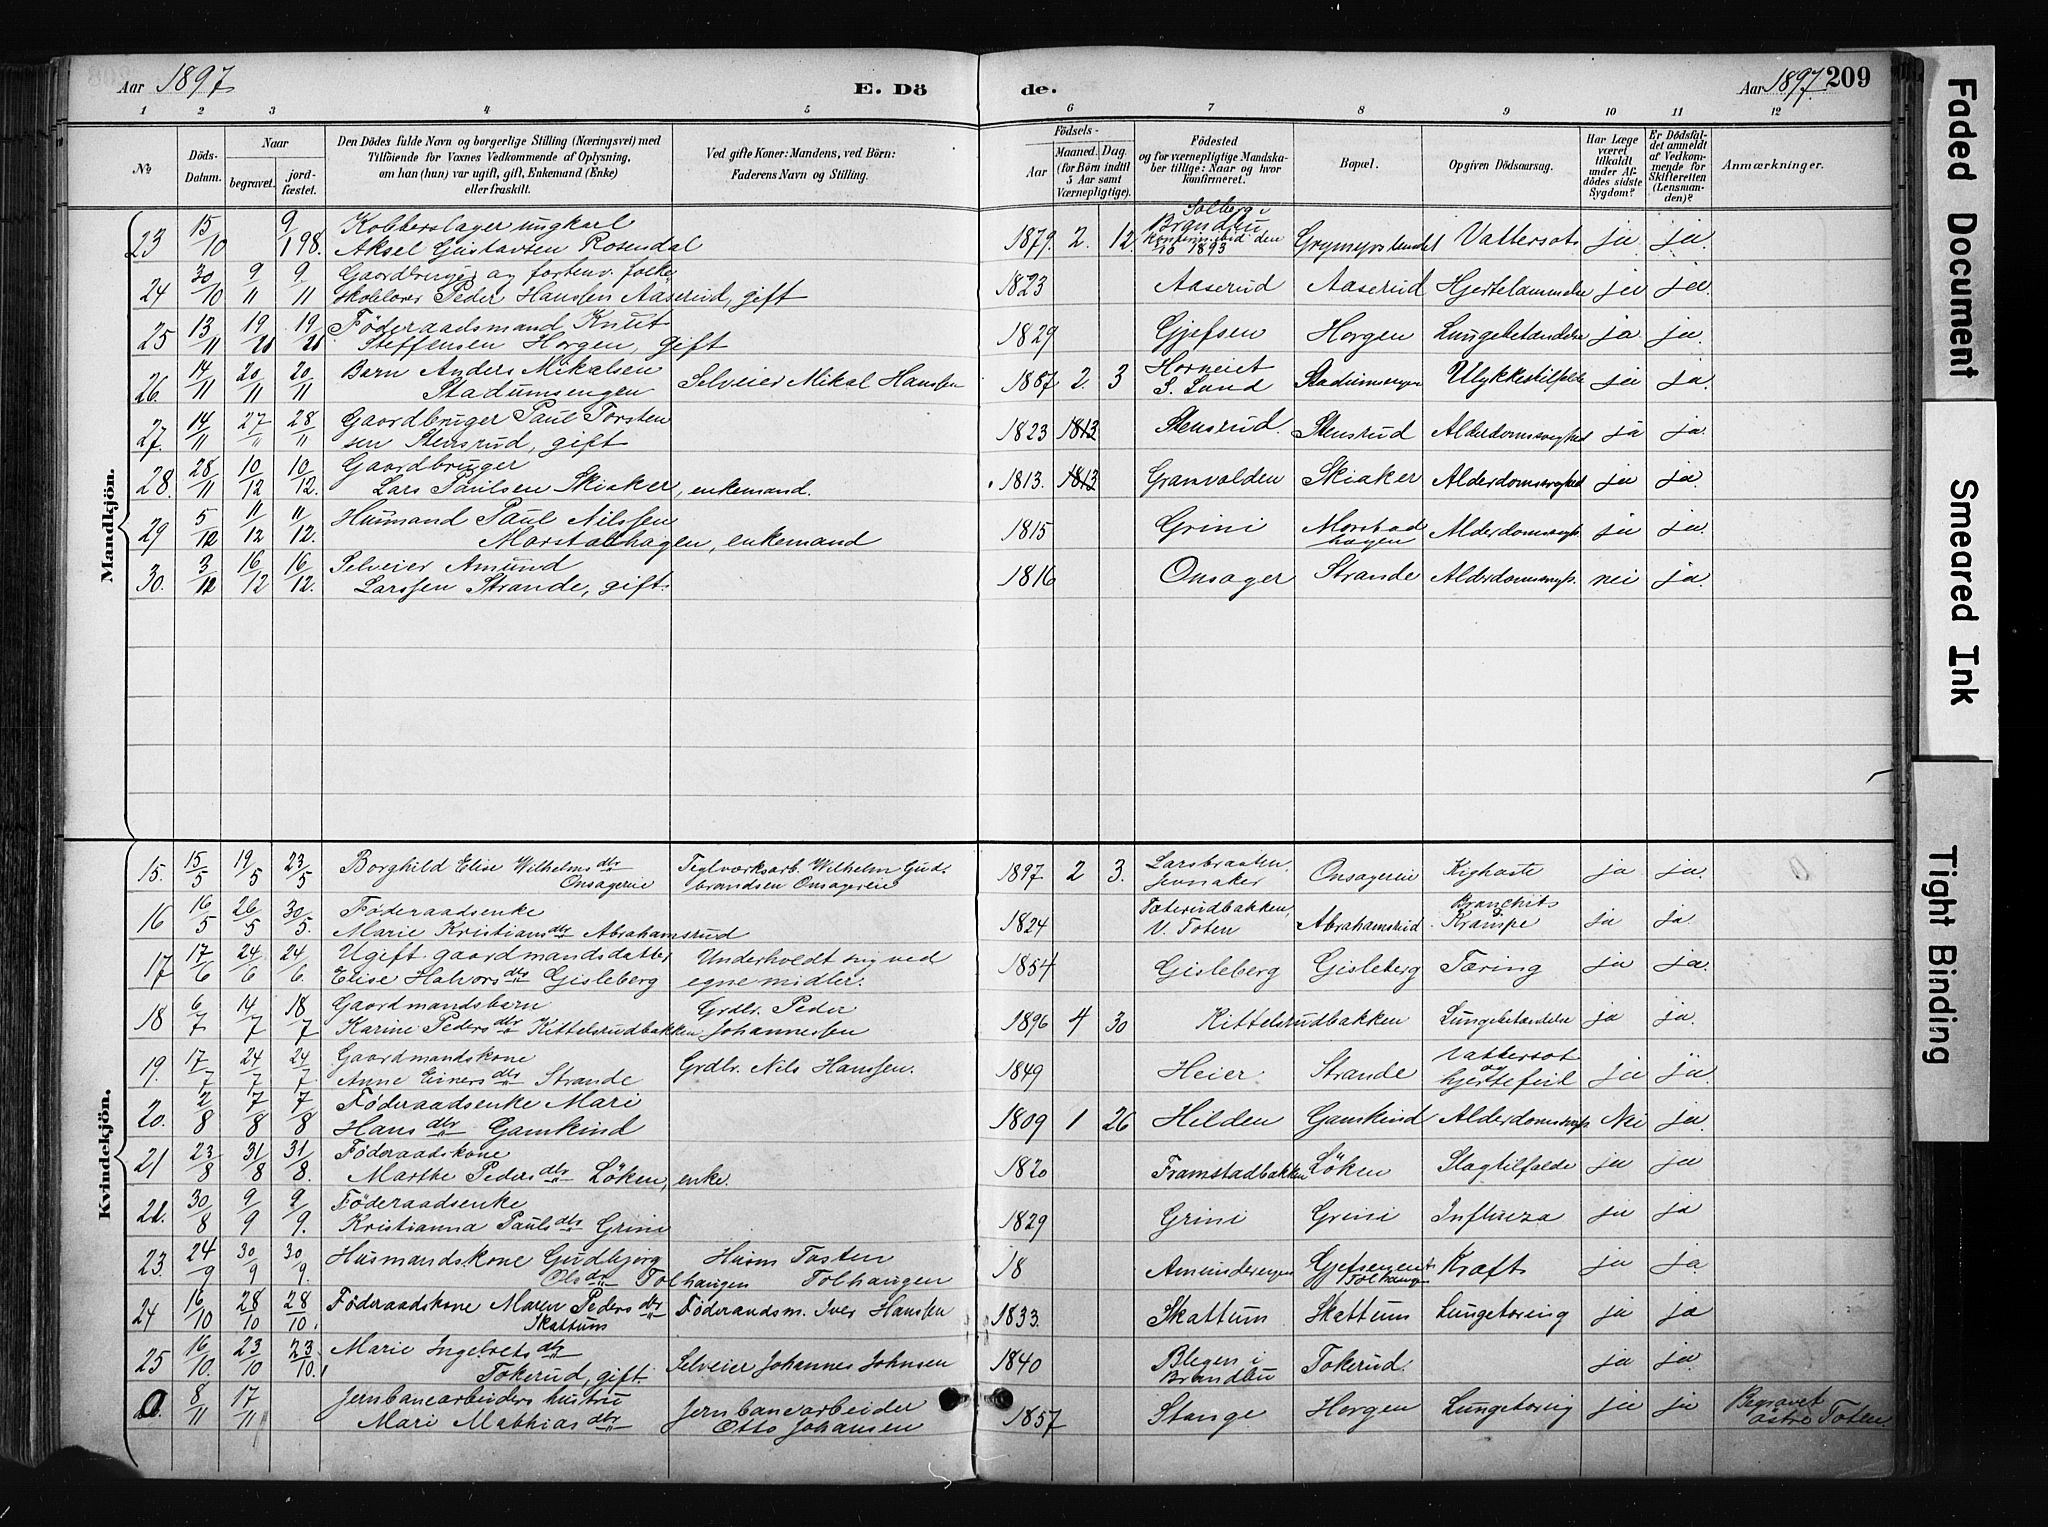 Aar 1897
E. Dö
de.
Aar 1897. 209
1 2 3 4 5 6 7 8 9 10 11 12
No.
Döds-Datum.
Naar
begravet.
jord-fæstet.
Den Dödes fulde Navn og borgerlige Stilling (Næringsvei) med
Tilföiende for Voxnes Vedkommende af Oplysning,
om han (hun) var ugift, gift, Enkemand (Enke)
eller fraskilt.
Ved gifte Koner: Mandens, ved Börn:
Faderens Navn og Stilling.
Födsels-
Aar
Maaned. Dag.
(for Börn indtil
5 Aar samt
Værnepligtige).
Födested
og for værnepligtige Mandska-
ber tillige: Naar og hvor
konfirmeret.
Bopæl.
Opgiven Dödsaarsag.
Har Læge
været
tilkaldt
under Af-
dödes sidste
Sygdom?
Er Dödsfal-
det anmeldt
af Vedkom-
mende for
Skifteretten
(Lensman-
den)?
Anmærkninger.
Mandkjön.
23 15/10 9/1 98. Kobberslager ungkarl
Aksel Gustavsen Rosendal 1879. 2. 12. Solberg i
Brandbu
Konfirmered den
1893 Vattersot ja ja.
24 30/10 9/11 9/11 Gaardbruger og forhenv. folke
skolelærer Peder Hansen Aaserud, gift 1823 Aaserud Aaserud Hjertelammelse ja ja.
25 13/11 19/11 Föderaadsmand Knut
Steffensen Horgen, gift 1829 Gjefsen Horgen Lungebetændelse ja ja.
26. 14/11 20/11 20/11 Barn Anders Mikalsen
Stadumsengen Selveier Mikal Hansen 1887 2. 3 Horneiet
S. Land Stadumsengen Ulykkestilfælde ja ja.
27. 14/11 27/11 28/11 Gaardbruger Paul Torsten
sen Stensrud, gift 1823 1813 Stensrud. Stensrud Alderdomssvaghed ja ja.
28. 28/11 10/12 10/12. Gaardbruger
Lars Paulsen Skiaker, enkemand. 1813. 1813 Granvolden Skiaker Alderdomssvaghed ja ja.
29 5/12 11/12 11/12. Husmand Paul Nilssen
Morstadhagen, enkemand 1815 Grini Morstad
hagen Alderdomssvagh. ja ja.
30. 3/12 16/12 16/12. Selveier Amund
Larssen Strande, gift. 1816 Onsager Strande Alderdomssvagh. nei ja.
Kvindekjön.
15. 15/5 19/5 23/5 Borghild Elise Wilhelmsdtr
Onsagereie Teglværksarb. Wilhelm Gud-
brandsen Onsagereie 1897 2 3. Larsbraaten
Jevnaker Onsagereie Kighoste ja ja.
16 16/5 26/5 30/5. Föderaadsenke
Marie Kristiansdtr Abrahamsrud 1824 Tæterudbakken,
V. Toten Abrahamsrud Bronchit
Krampe ja ja
17 17/6 24/6 24/6. Ugift gaardmandsdatter
Elise Halvorsdtr Gisleberg Underholdt sig ved
egne midler. 1854 Gisleberg Gisleberg Tæring ja ja.
18 6/7 14/7 18/7 Gaardmandsbarn
Karine Pedersdtr Kittelsrudbakken Grdbr. Peder
Johannessen 1896 4 30 Kittelsrudbakken Lungebetændelse ja ja.
19. 17/7 24/7 24/7. Gaardmandskone
Anne Einersdtr Strande Grdbr. Nils Hanssen. 1849 Heier Strande Vattersot
og
hjertefeil ja ja.
20. 2/8 7/8 7/8 Föderaadsenke Mari
Hansdtr Gamkind 1809 1 26 Hilden Gamkind Alderdomssvagh Nei ja.
21 23/8 31/8 31/8. Föderaadskone
Marthe Pedersdtr Löken, enke. 1820 Framstadbakken Löken Slagtilfælde ja ja
22. 30/8 9/9 9/9. Föderaadsenke
Kristianna Paulsdtr Grini 1829 Grini Grini Influenza ja ja
23. 24/9 30/9 30/9. Husmandskone Gudbjörg
Olsdtr Tolhaugen Husm Tosten
Tolhaugen 18 Amundsengen Gjefseneiet
Tolhaugen Kræft ja ja.
24 16/10 28/10 28/10. Föderaadskone Maren Pedersdtr
Skattum Föderaadsm. Iver Hansen 1833. Skattum Skattum Lungetæring ja ja
25 16/10. 23/10 23/10. Marie Ingebretsdtr
Tokerud, gift. Selveier Johannes Johnsen 1840 Blegen i
Brandbu Tokerud. ja ja
0 8/11 17/11 Jernbanearbeiders hustru
Mari Mathiasdtr Jernbanearbeider
Otto Johansen 1857 Stange Horgen Lungetæring ja ja Begravet
östre Toten
Faded Document
Smeared Ink
Tight Binding